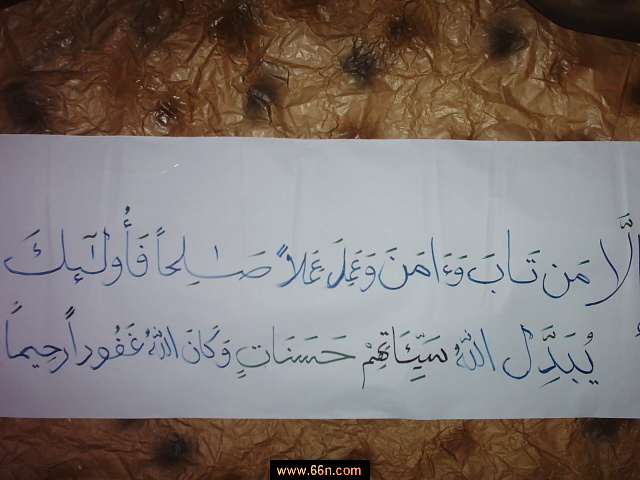 إلَّا مَن تَابَ وَءَامَنَ وَعَمِلَ عَمَلاً صَـٰلِحاً فَأُوْلَـٰٓئِكَ
يُبَدِّلُ اللَّهُ سَيِّئَاتِهِمْ حَسَنَاتٍ وَكَانَ اللَّهُ غَفُوراً رَحِيماً
www.66n.com